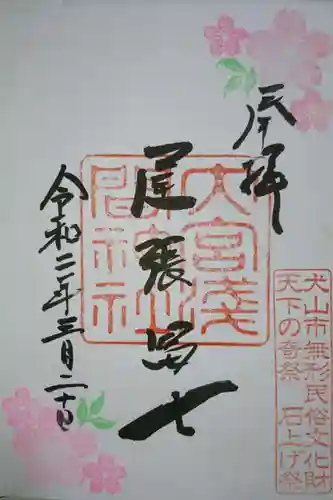 奉拝
犬山市無形民俗文化財
天下の奇祭 石上げ祭
大宮浅間神社
尾張冨士
令和二年三月二十日